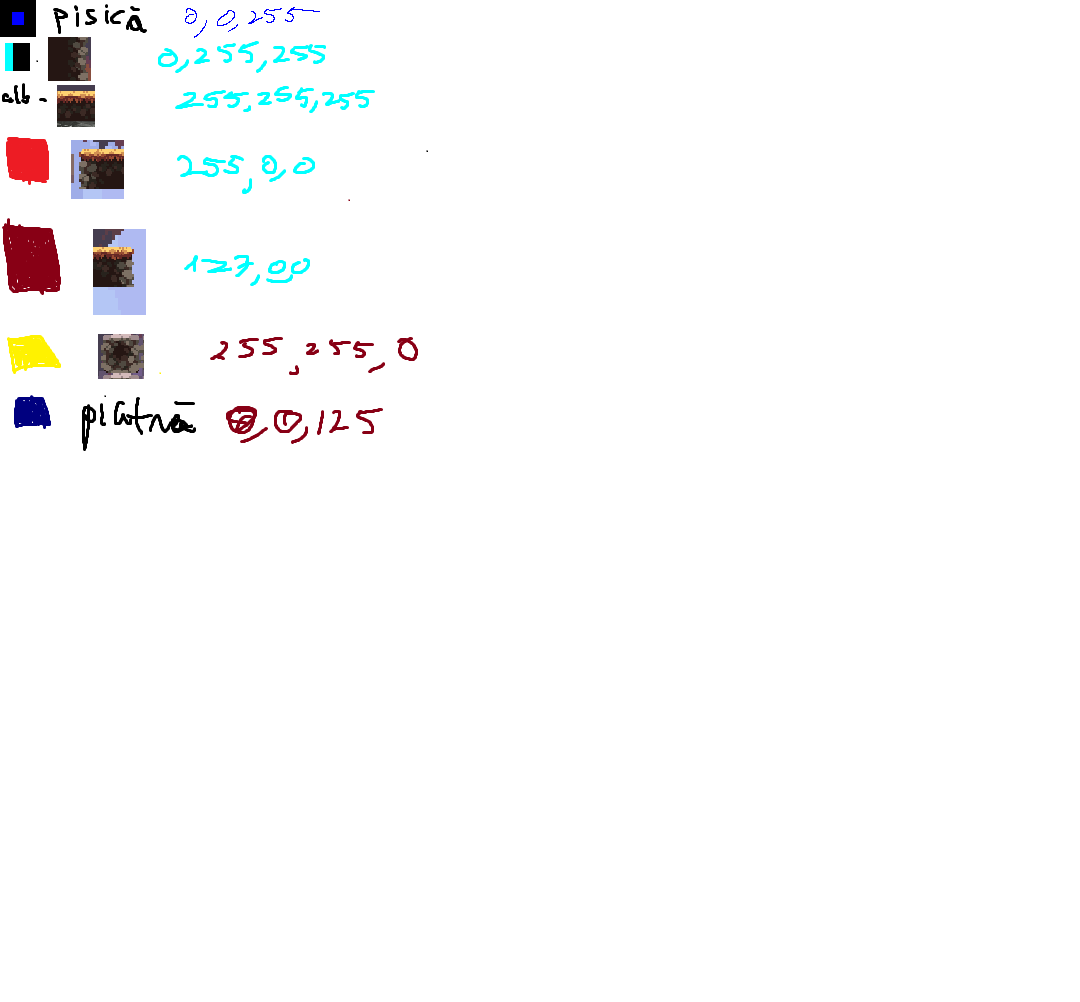 pisică 0,0,255
0,255,255
alb - 255,255,255
255,0,0
127,0,0
255,255,0
piatră 0,0,125